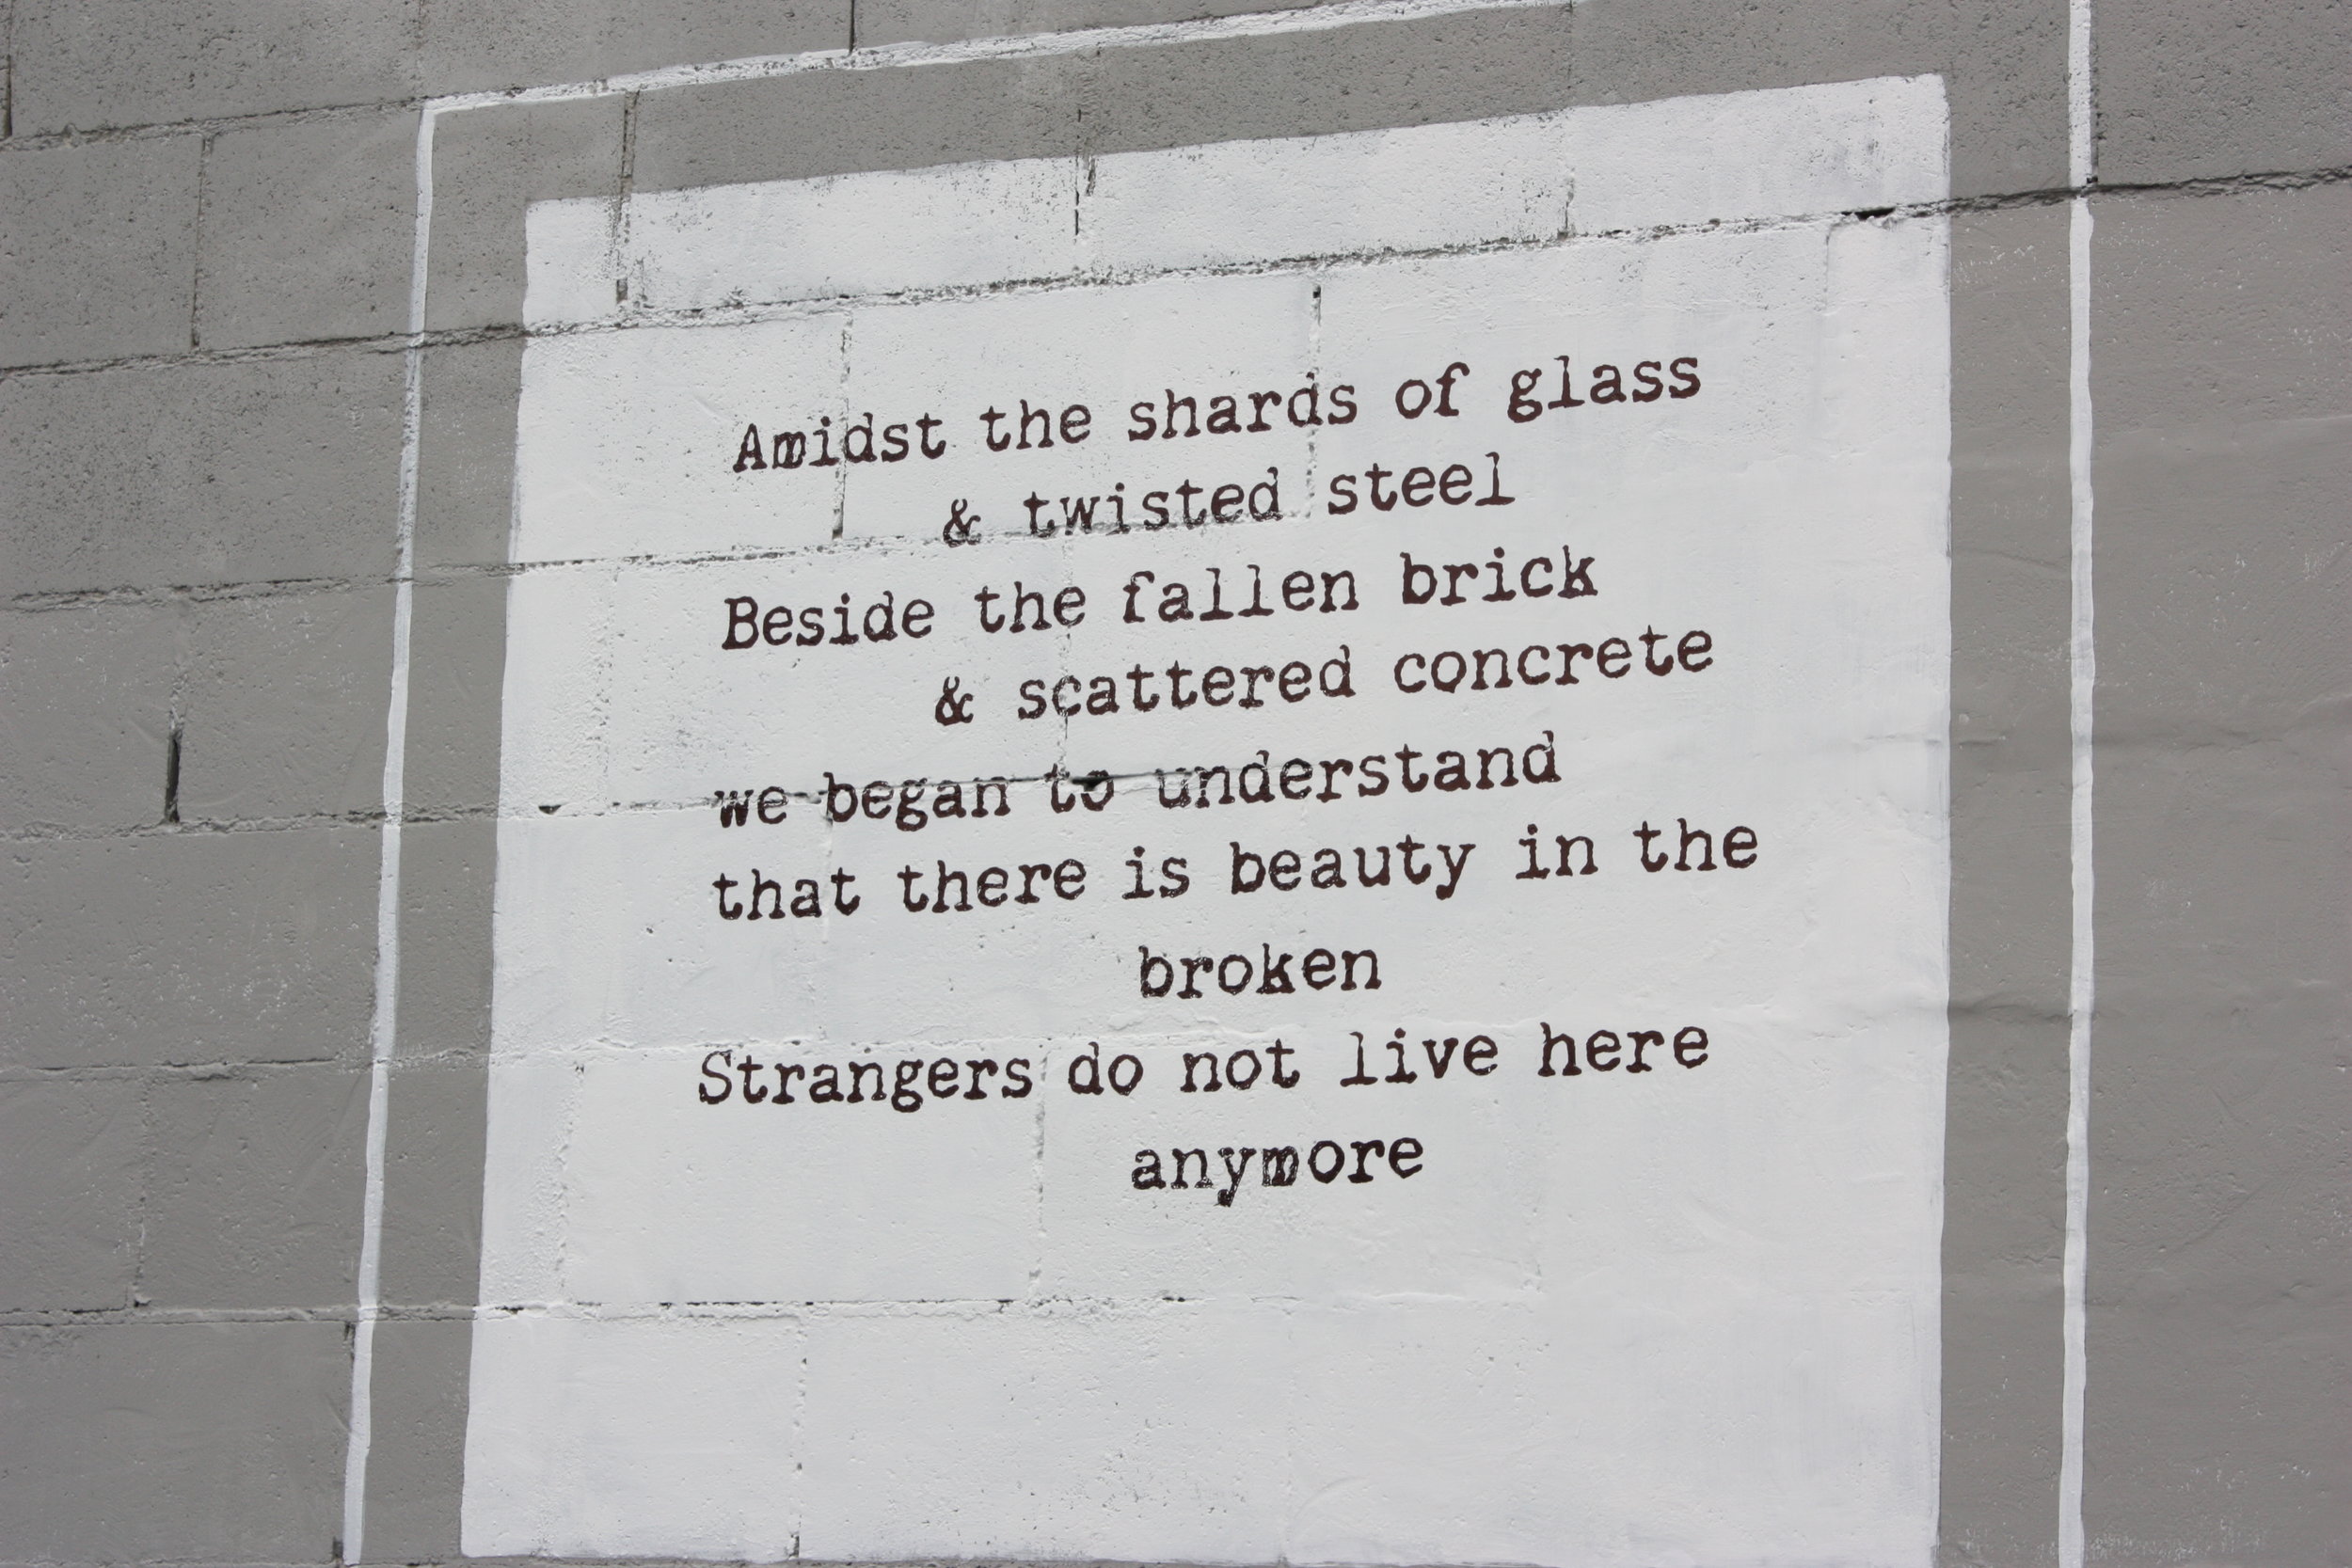 Amidst the shards of glass
& twisted steel
Beside the fallen brick
& scattered concrete
we began to understand
that there is beauty in the
broken
Strangers do not live here
anymore